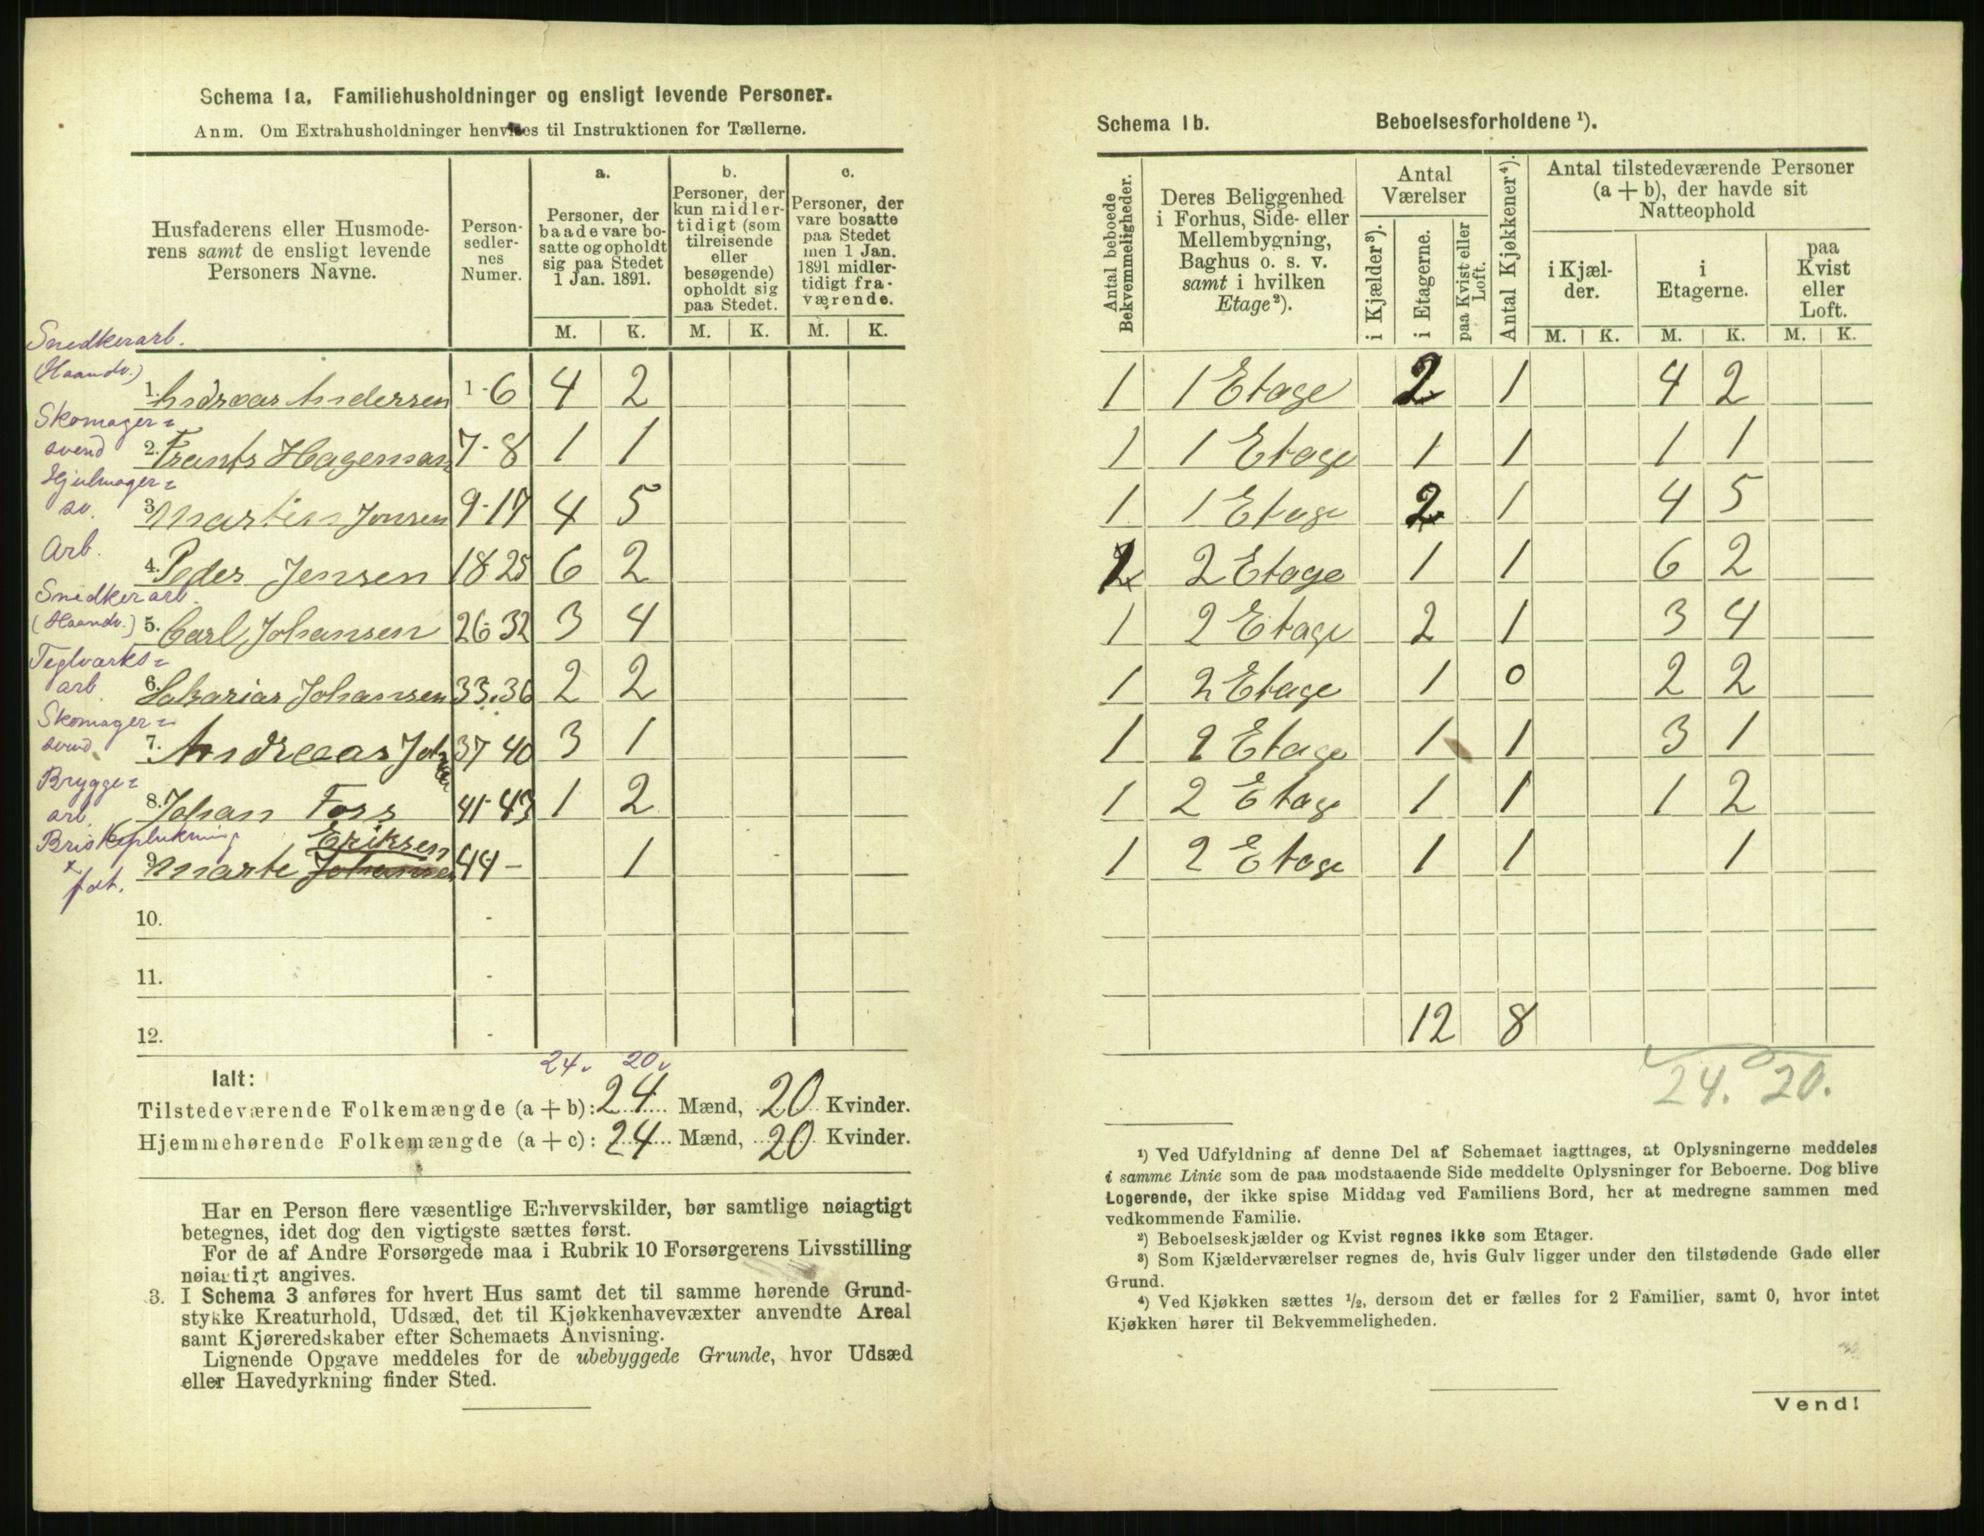 Schema 1a. Familiehusholdninger og ensligt levende Personer.
Anm. Om Extrahusholdninger henvises til Instruktionen for Tællerne.
Husfaderens eller Husmoderens samt de ensligt levende Personers Navne.
Personsedlernes Numer.
a. Personer, der baade vare bosatte og opholdt sig paa Stedet 1 Jan. 1891.
b. Personer, der kun midlertidigt (som tilreisende eller besøgende) opholdt sig paa Stedet.
c. Personer, der vare bosatte paa Stedet men 1 Jan. 1891 midlertidigt fraværende.
M. K. M. K. M. K.
Snedkerarb.
(Haandv.)
1. Andreas Andersen 1-6 4 2
Skomager=
svend
2. Frants Hageman 7-8 1 1
Hjulmager=
sv.
3. Martin Jonsen 9-17 4 5
Arb.
4. Peder Jensen 18 25 6 2
Snedkerarb.
(Haandv.)
5. Carl Johansen 26-32 3 4
Teglværks=
arb.
6. Sakarias Johansen 33.36 2 2
Skomager=
svend
7. Andreas Joh 37 40 3 1
Brygge=
arb.
8. Johan Foss 41-43 1 2
Eriksen
9. Marte Johansen 44- 1
fat.
10. -
11. -
12. -
24. 20.
Ialt:
Tilstedeværende Folkemængde (a + b): 24 Mænd, 20 Kvinder.
Hjemmehørende Folkemængde (a + c): 24 Mænd, 20 Kvinder.
Har en Person flere væsentlige Erhvervskilder, bør samtlige nøiagtigt
betegnes, idet dog den vigtigste sættes først.
For de af Andre Forsørgede maa i Rubrik 10 Forsørgerens Livsstilling
nøiagtigt angives.
3. I Schema 3 anføres for hvert Hus samt det til samme hørende Grund-
stykke Kreaturhold, Udsæd, det til Kjøkkenhavevæxter anvendte Areal
samt Kjøreredskaber efter Schemaets Anvisning.
Lignende Opgave meddeles for de ubebyggede Grunde, hvor Udsæd
eller Havedyrkning finder Sted.
Schema 1b. Beboelsesforholdene ¹).
Antal beboede Bekvemmeligheder.
Deres Beliggenhed i Forhus, Side- eller Mellembygning, Baghus o. s. v. samt i hvilken Etage²).
Antal Værelser
i Kjælder³).
i Etagerne.
paa Kvist eller Loft.
Antal Kjøkkener⁴).
Antal tilstedeværende Personer (a + b), der havde sit Natteophold
i Kjælder.
i Etagerne.
paa Kvist eller Loft.
M. K. M. K. M. K.
1 1 Etage 2 1 4 2
1 1 Etage 1 1 1 1
1 1 Etage 2 1 4 5
1 2 Etage 1 1 6 2
1 2 Etage 2 1 3 4
1 2 Etage 1 0 2 2
1 2 Etage 1 1 3 1
1 2 Etage 1 1 1 2
1 2 Etage 1 1 1
12 8
24. 20.
¹) Ved Udfyldning af denne Del af Schemaet iagttages, at Oplysningerne meddeles
i samme Linie som de paa modstaaende Side meddelte Oplysninger for Beboerne. Dog blive
Logerende, der ikke spise Middag ved Familiens Bord, her at medregne sammen med
vedkommende Familie.
²) Beboelseskjælder og Kvist regnes ikke som Etager.
³) Som Kjælderværelser regnes de, hvis Gulv ligger under den tilstødende Gade eller
Grund.
⁴) Ved Kjøkken sættes ½, dersom det er fælles for 2 Familier, samt 0, hvor intet
Kjøkken hører til Bekvemmeligheden.
Vend!